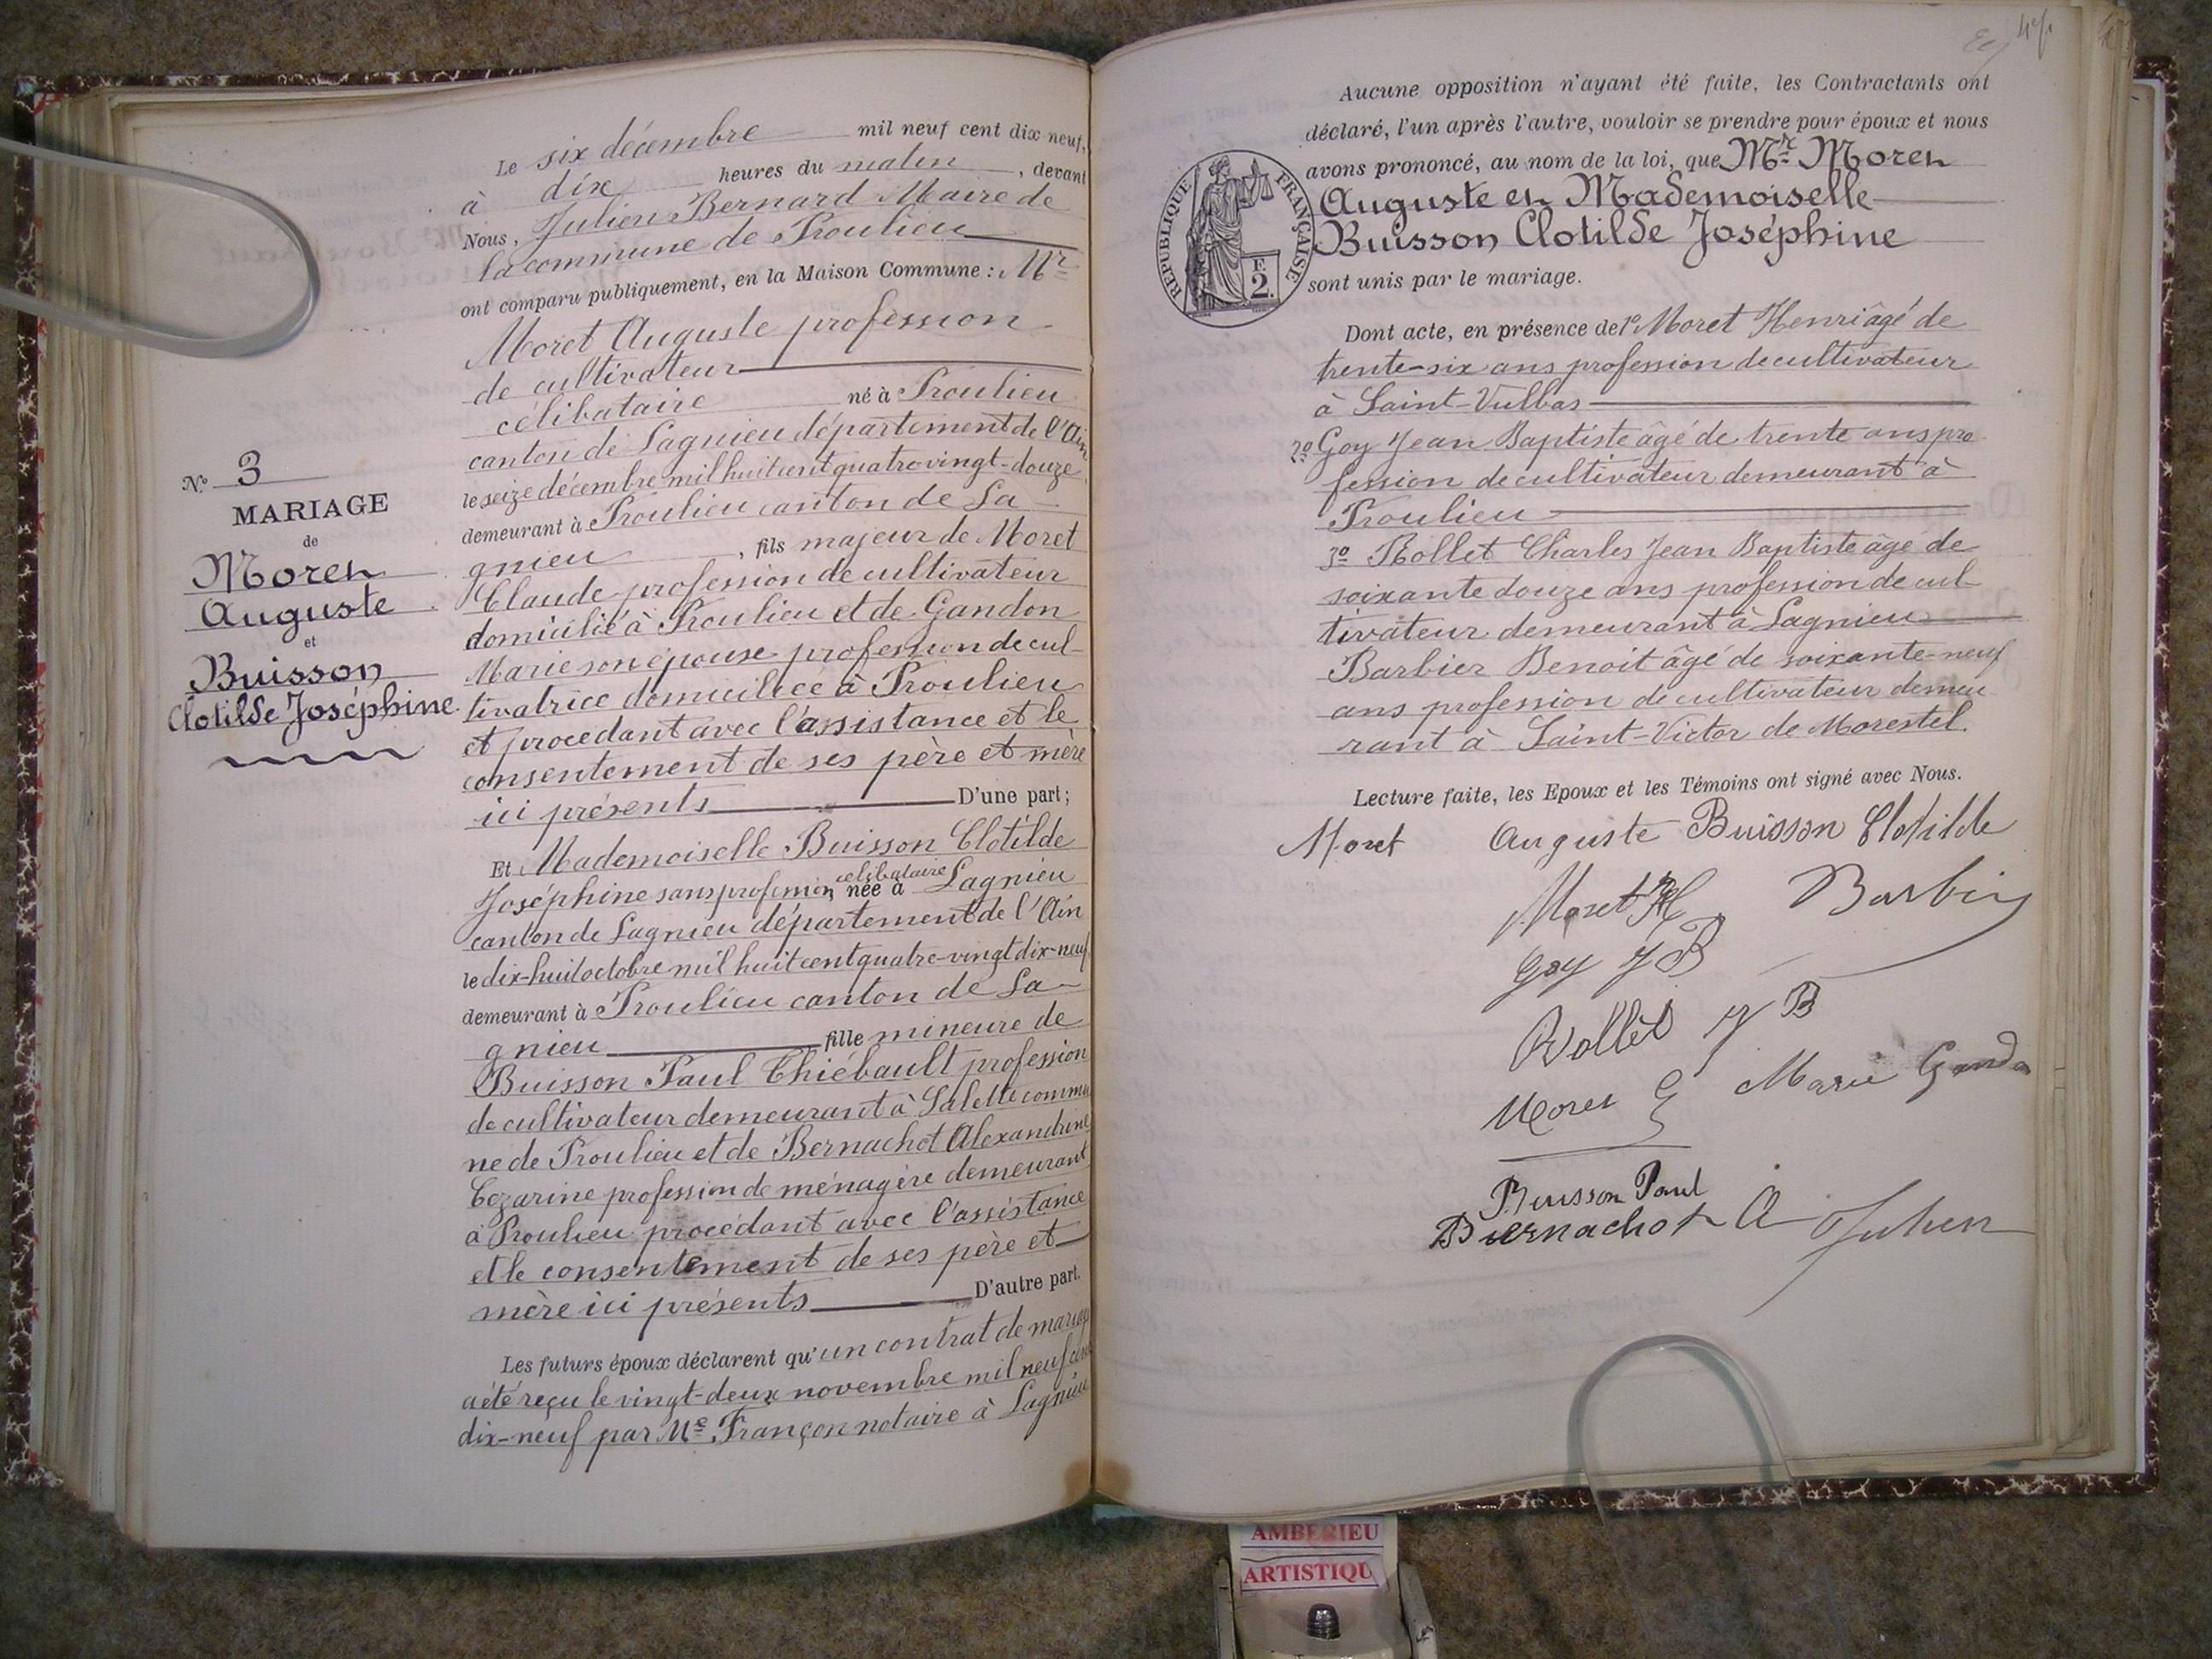 Le six décembre mil neuf cent dix neuf,
à dix heures du matin, devant
Nous, Julien Bernard Maire de
la commune de Proulieu
ont comparu publiquement, en la Maison Commune : Mr
Moret Auguste profession
de cultivateur
célibataire né à Proulieu
canton de Lagnieu département de l'Ain
le seize décembre mil huit cent quatre vingt-douze
demeurant à Proulieu canton de La
gnieu, fils majeur de Moret
Claude profession de cultivateur
domicilié à Proulieu et de Gandon
Marie son épouse profession de cul-
tivatrice domiciliée à Proulieu
et procédant avec l'assistance et le
consentement de ses père et mère
ici présents D'une part;
Et Mademoiselle Buisson Clotilde
célibataire
Joséphine sans profession, née à Lagnieu
canton de Lagnieu département de l'Ain
le dix-huit octobre mil huit cent quatre-vingt dix-neuf
demeurant à Proulieu canton de La-
gnieu fille mineure de
Buisson Paul Thiébault profession
de cultivateur demeurant à Salette commu
ne de Proulieu et de Bernachot Alexandrine
Cézarine profession de ménagère demeurant
à Proulieu procédant avec l'assistance
et le consentement de ses père et
mère ici présents D'autre part.
Les futurs époux déclarent qu'un contrat de mariage
a été reçu le vingt-deux novembre mil neuf cent
dix-neuf par Me Françon notaire à Lagnieu
No 3
MARIAGE
de
Moret
Auguste
et
Buisson
Clotilde Joséphine
Aucune opposition n'ayant été faite, les Contractants ont
déclaré, l'un après l'autre, vouloir se prendre pour époux et nous
avons prononcé, au nom de la loi, que Mr Moret
Auguste et Mademoiselle
Buisson Clotilde Joséphine
sont unis par le mariage.
RÉPUBLIQUE FRANÇAISE
F.
2.
Dont acte, en présence de 1o Moret Henri âgé de
trente-six ans profession de cultivateur
à Saint-Vulbas
2o Goy Jean Baptiste âgé de trente ans pro
fession de cultivateur demeurant à
Proulieu
3o Rollet Charles Jean Baptiste âgé de
soixante douze ans profession de cul-
tivateur demeurant à Lagnieu
Barbier Benoit âgé de soixante-neuf
ans profession de cultivateur demeu
rant à Saint-Victor de Morestel.
Lecture faite, les Epoux et les Témoins ont signé avec Nous.
Moret Auguste Buisson Clotilde
Moret H Barbier
Goy J B
Rollet J B
Moret Marie Gandon
Buisson Paul
Bernachot A Julien
AMBERIEU
ARTISTIQU